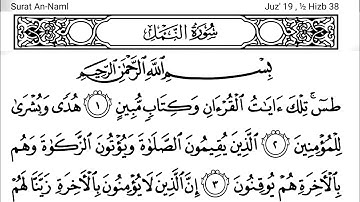 Surat An-Naml Juz' 19 , ½ Hizb 38
سُورَةُ النَّمْلِ
بِسْمِ ٱللَّهِ ٱلرَّحْمَٰنِ ٱلرَّحِيمِ
طسٓ ۚ تِلْكَ ءَايَٰتُ ٱلْقُرْءَانِ وَكِتَابٍ مُّبِينٍ ١ هُدًى وَبُشْرَىٰ
لِلْمُؤْمِنِينَ ٢ ٱلَّذِينَ يُقِيمُونَ ٱلصَّلَوٰةَ وَيُؤْتُونَ ٱلزَّكَوٰةَ وَهُم
بِٱلْءَاخِرَةِ هُمْ يُوقِنُونَ ٣ إِنَّ ٱلَّذِينَ لَا يُؤْمِنُونَ بِٱلْءَاخِرَةِ زَيَّنَّا لَهُمْ